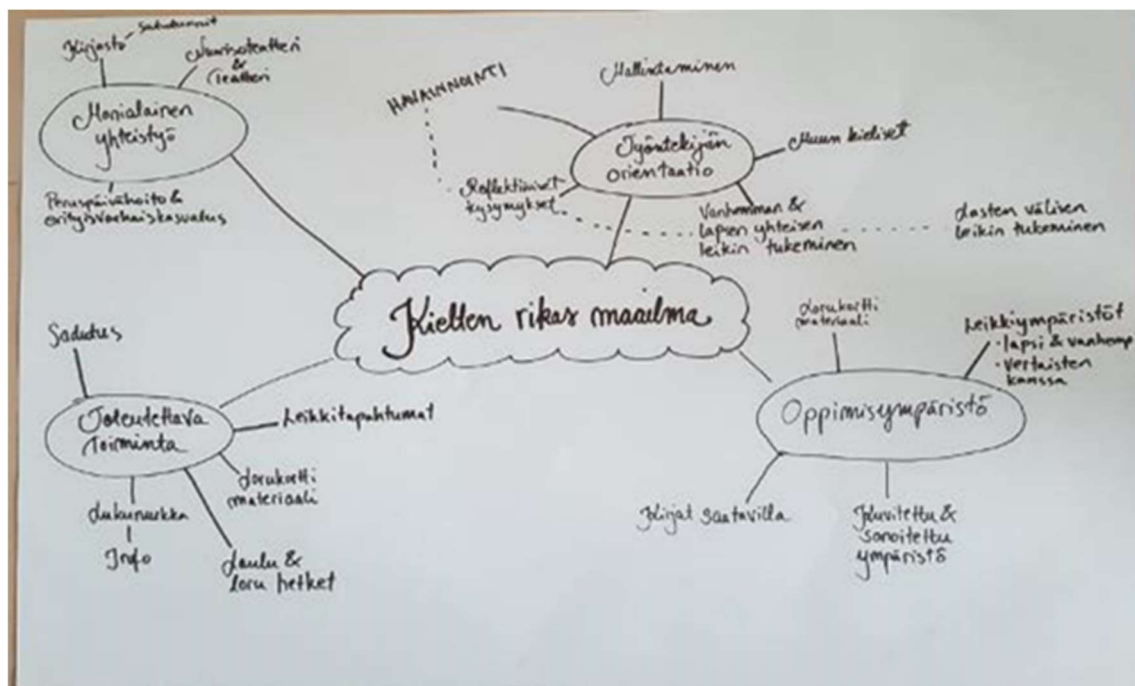 Kirjasto – Satutunnit
Nuorisoteatteri
&
Teatteri
Monialainen
yhteistyö
Peruspäivähoito &
erityisvarhaiskasvatus
HAVAINNOINTI
Mallintaminen
Työntekijän
orientaatio
Muun kieliset
Reflektiiviset
kysymykset
Vanhemman &
lapsen yhteisen
leikin tukeminen
Lasten välisen
leikin tukeminen
Kielten rikas maailma
Sadutus
Toteutettava
Toiminta
Leikkitapahtumat
Lorukortti
materiaali
Lukunurkka
Info
Laulu &
loru hetket
Lorukortti
materiaali
Leikkiympäristöt
· lapsi & vanhemp
· vertaisten
kanssa
Oppimisympäristö
Kirjat saatavilla
Kuvitettu &
sanoitettu
ympäristö